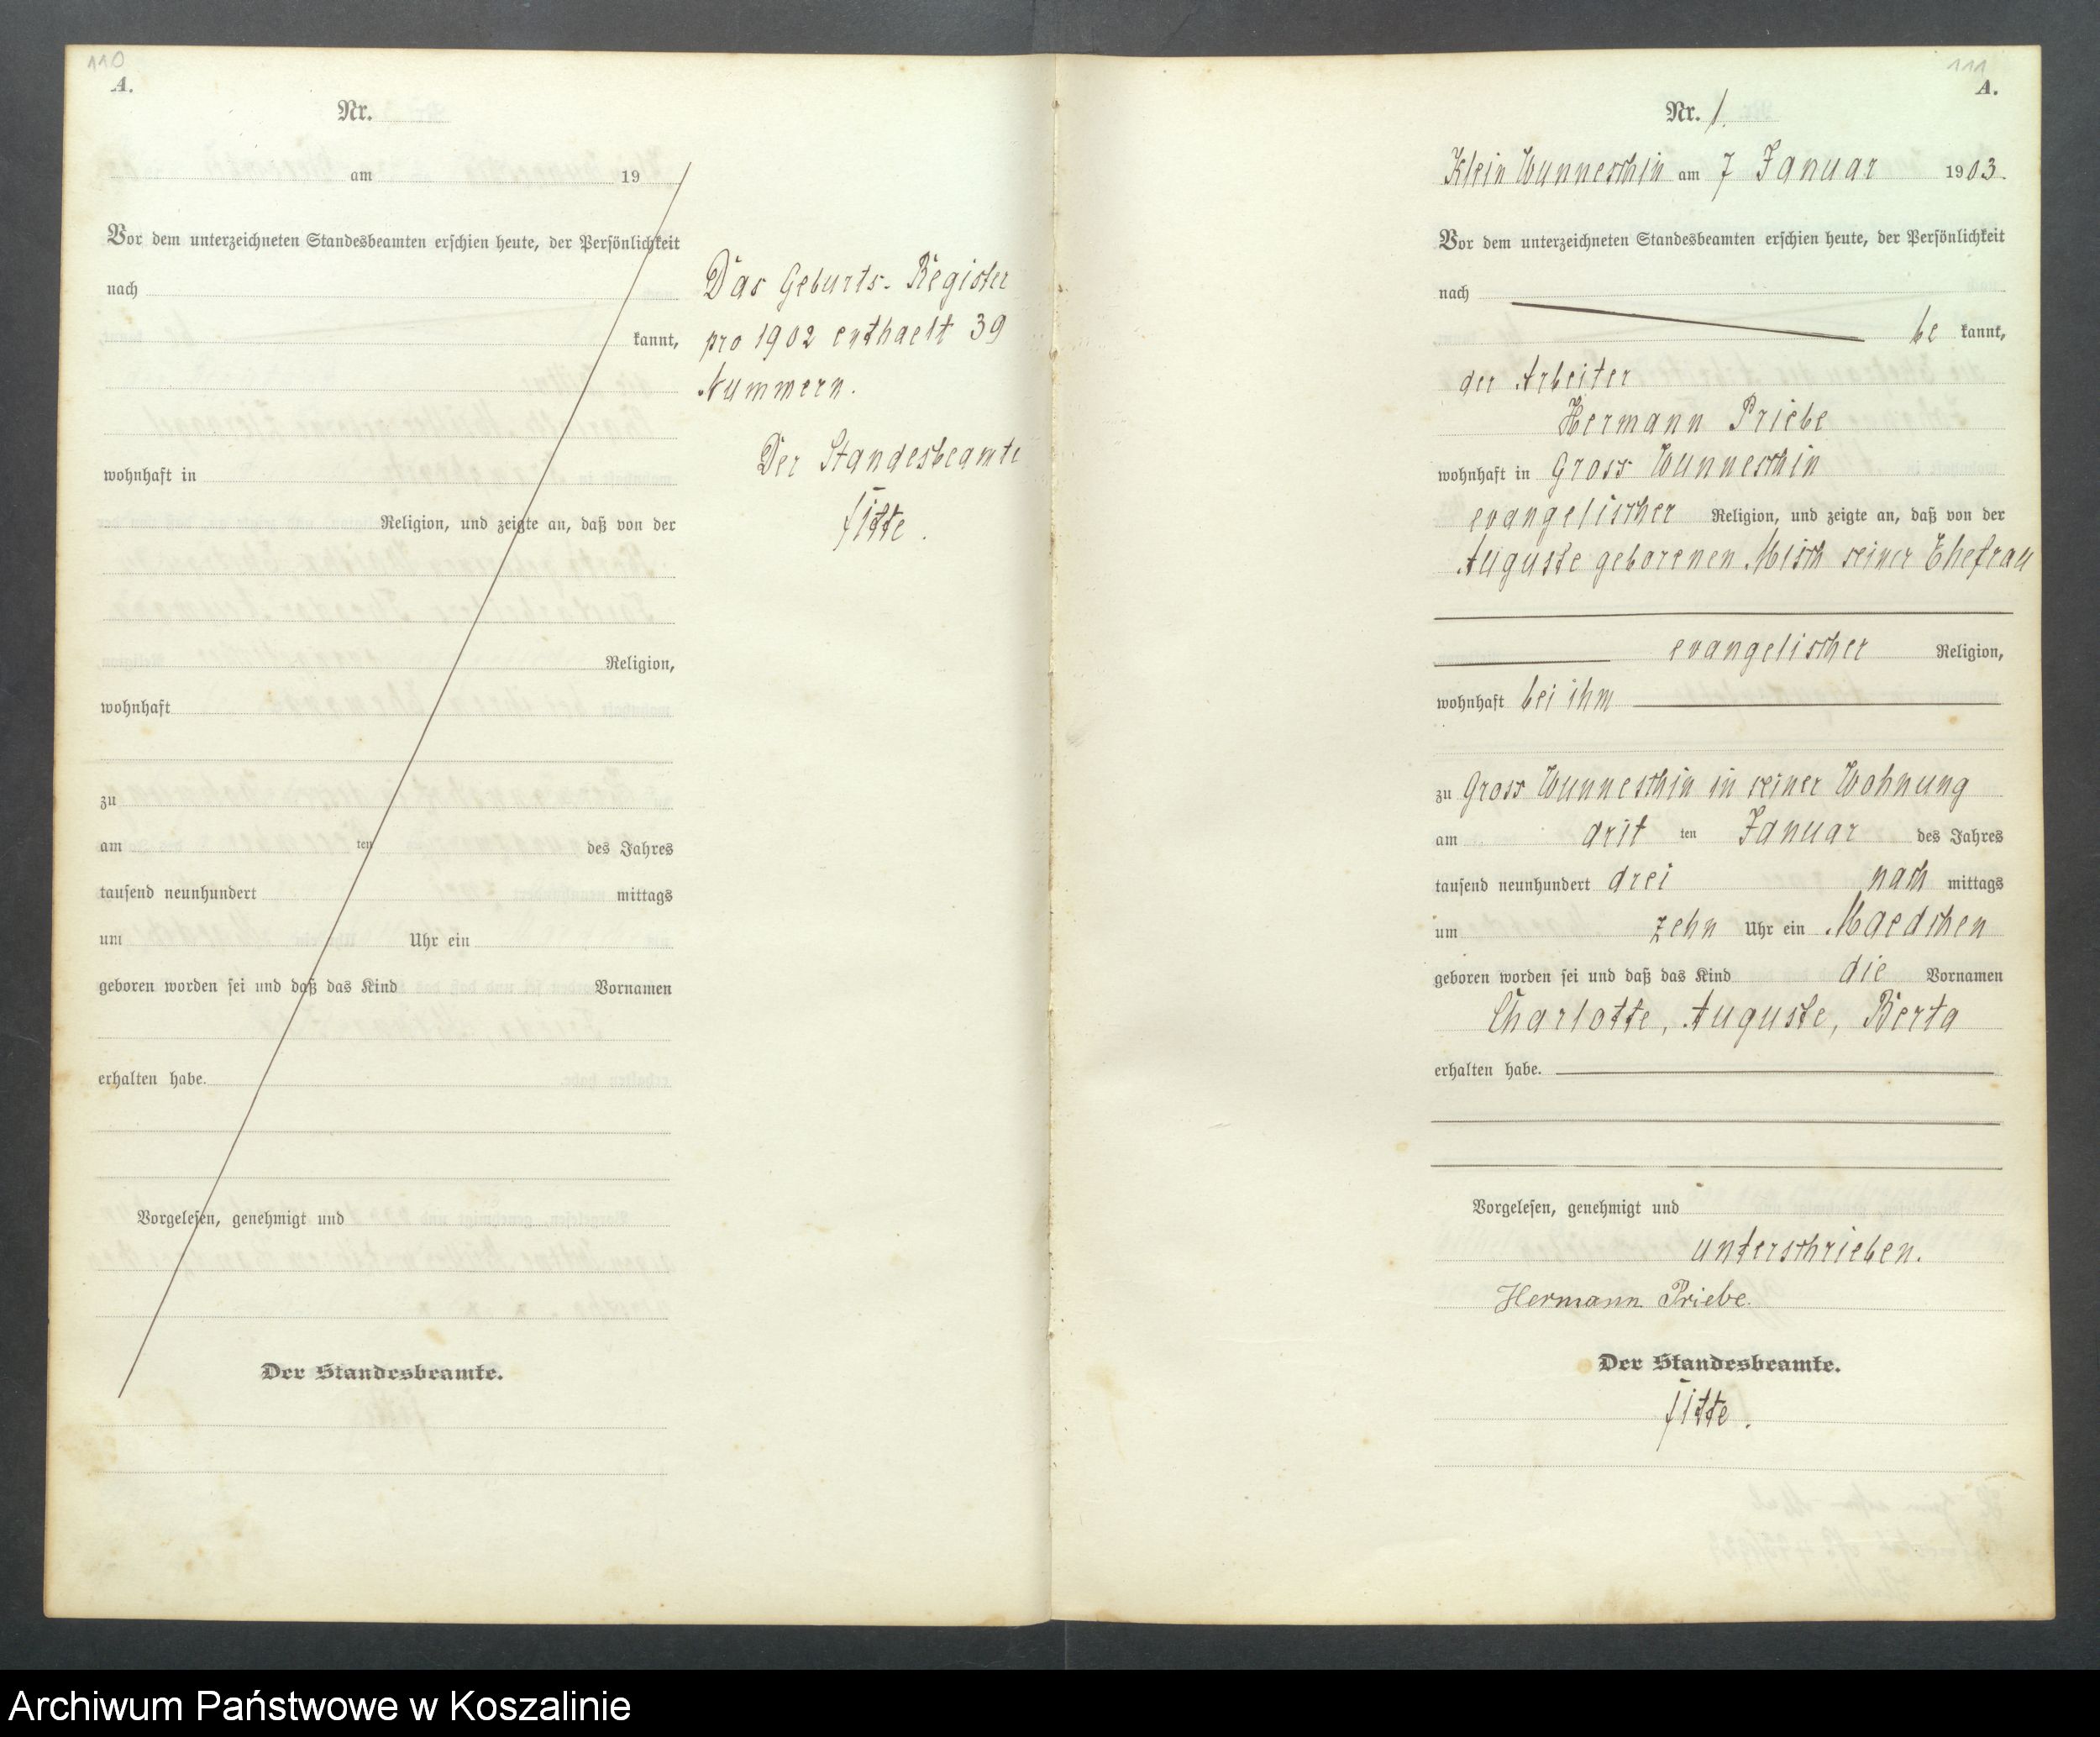 110
A.
Nr.
am 19
Vor dem unterzeichneten Standesbeamten erschien heute, der Persönlichkeit
nach
kannt,
wohnhaft in
Religion, und zeigte an, daß von der
Religion,
wohnhaft
zu
am ten des Jahres
tausend neunhundert mittags
um Uhr ein
geboren worden sei und daß das Kind Vornamen
erhalten habe.
Vorgelesen, genehmigt und
Der Standesbeamte.
Das Geburts-Register
pro 1902 enthaelt 39
Nummern.
Der Standesbeamte
Titte.
111
A.
Nr. 1.
Klein Wunneschin am 7 Januar 1903.
Vor dem unterzeichneten Standesbeamten erschien heute, der Persönlichkeit
nach
be kannt,
der Arbeiter
Hermann Priebe
wohnhaft in Gross Wunneschin
evangelischer Religion, und zeigte an, daß von der
Auguste geborenen Misch seiner Ehefrau
evangelischer Religion,
wohnhaft bei ihm
zu Gross Wunneschin in seiner Wohnung
am drit ten Januar des Jahres
tausend neunhundert drei nach mittags
um zehn Uhr ein Maedchen
geboren worden sei und daß das Kind die Vornamen
Charlotte, Auguste, Berta
erhalten habe.
Vorgelesen, genehmigt und
unterschrieben.
Hermann Priebe.
Der Standesbeamte.
Titte.
Archiwum Państwowe w Koszalinie